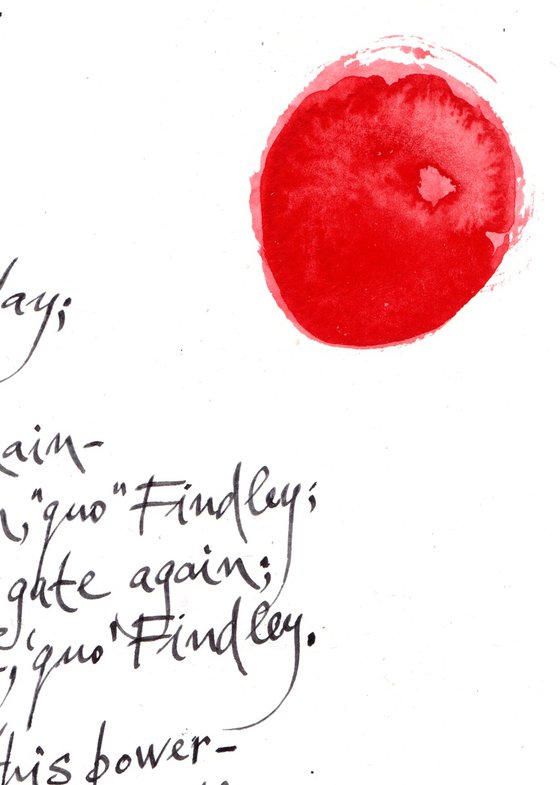 lay;
ain-
n,"quo" Findley;
gate again;
,'quo' Findley.
this bower-